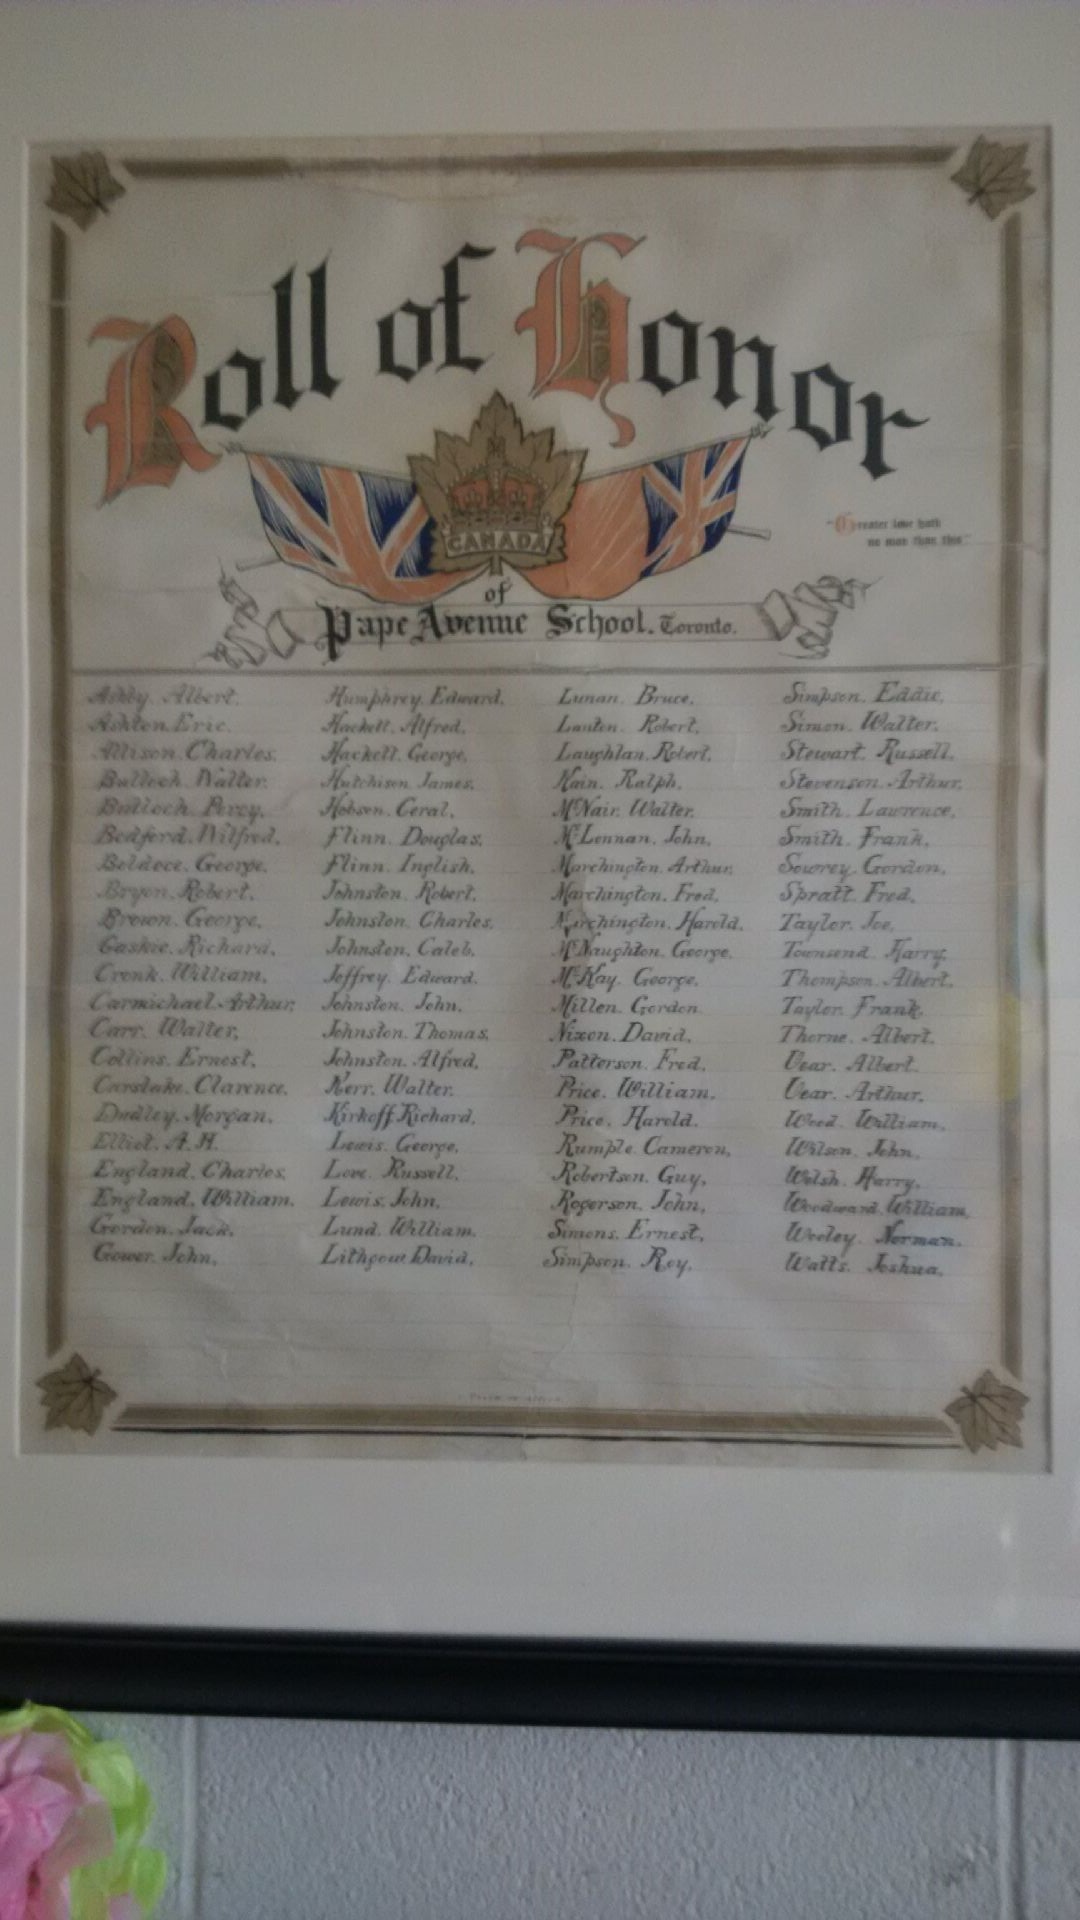 Roll of Honor
CANADA
"Greater love hath
no man than this"
of
Pape Avenue School. Toronto.
Ashby. Albert.
Ashton. Eric.
Allison. Charles.
Bulloch. Walter.
Bulloch. Percy.
Bedford. Wilfred.
Beldece. George.
Bryon. Robert.
Brown. George.
Caskie. Richard.
Cronk. William.
Carmichael. Arthur.
Carr. Walter.
Collins. Ernest.
Carslake. Clarence.
Dudley. Morgan.
Elliot. A.H.
England. Charles.
England. William.
Gordon. Jack.
Gower. John.
Humphrey. Edward.
Hackett. Alfred.
Hackett. George.
Hutchison. James.
Hobson. Ceral.
Flinn. Douglas.
Flinn. Inglish.
Johnston. Robert.
Johnston. Charles.
Johnston. Caleb.
Joffrey. Edward.
Johnston. John.
Johnston. Thomas.
Johnston. Alfred.
Kerr. Walter.
Kirkoff. Richard.
Lewis. George.
Love. Russell.
Lewis. John.
Lund. William.
Lithgow. David.
Lunan. Bruce.
Lanten. Robert.
Laughlan. Robert.
Kain. Ralph.
McNair. Walter.
McLennan. John.
Marchington. Arthur.
Marchington. Fred.
Marchington. Harold.
McNaughton. George.
McKay. George.
Millen. Gordon.
Nixon. David.
Patterson. Fred.
Price. William.
Price. Harold.
Rumple. Cameron.
Robertson. Guy.
Rogerson. John.
Simons. Ernest.
Simpson. Roy.
Simpson. Eddie.
Simon. Walter.
Stewart. Russell.
Stevenson. Arthur.
Smith. Lawrence.
Smith. Frank.
Sowrey. Gordon.
Spratt. Fred.
Taylor. Joe.
Townsend. Harry.
Thompson. Albert.
Taylor. Frank.
Thorne. Albert.
Vear. Albert.
Vear. Arthur.
Wood. William.
Wilson. John.
Welsh. Harry.
Woodward. William.
Wooley. Norman.
Watts. Joshua.